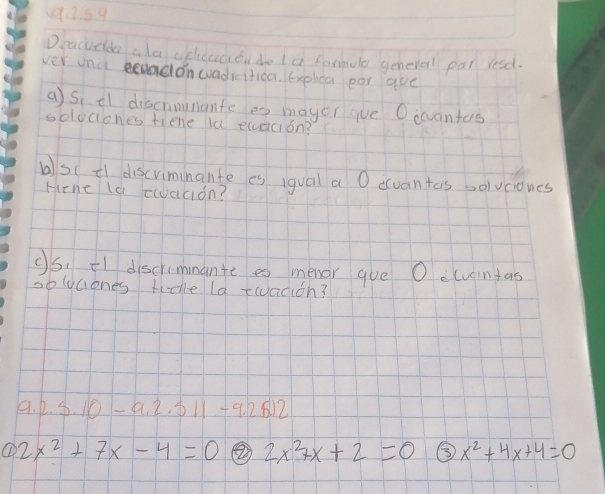 9.2.5.9
Deacuelda a la aplicación de la formula general par resol-
ver una ecuación cuadratica. Explica por que
a) Si el discriminante es mayor que 0 ¿cuantas
soluciones tiene la ecuación?
b) Si el discriminante es igual a 0 ¿cuantas soluciones
tiene la ecuación?
c) Si el discriminante es menor que 0 ¿cuantas
soluciones tiene la ecuación?
9.2.5.10 - 9.2.5.11 - 9.2.5.12
① 2x² + 7x - 4 = 0 ② 2x² + x + 2 = 0 ③ x² + 4x + 4 = 0